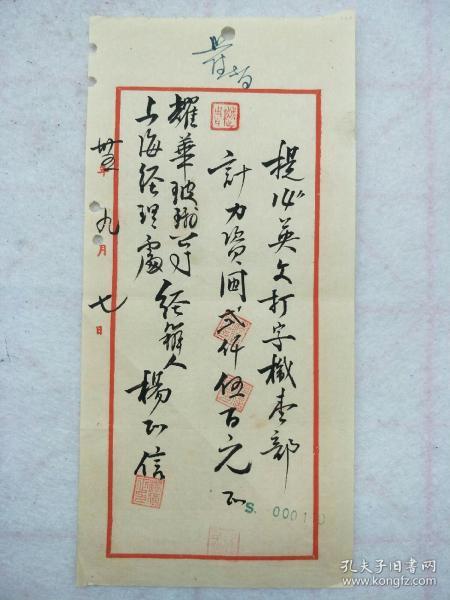 提送英文打字機壹部
計力資國幣弍仟伍百元正
耀華玻璃公司
上海經理處
經辦人 楊正信
卅五年九月七日
S. 000
孔夫子旧书网
www.kongfz.com